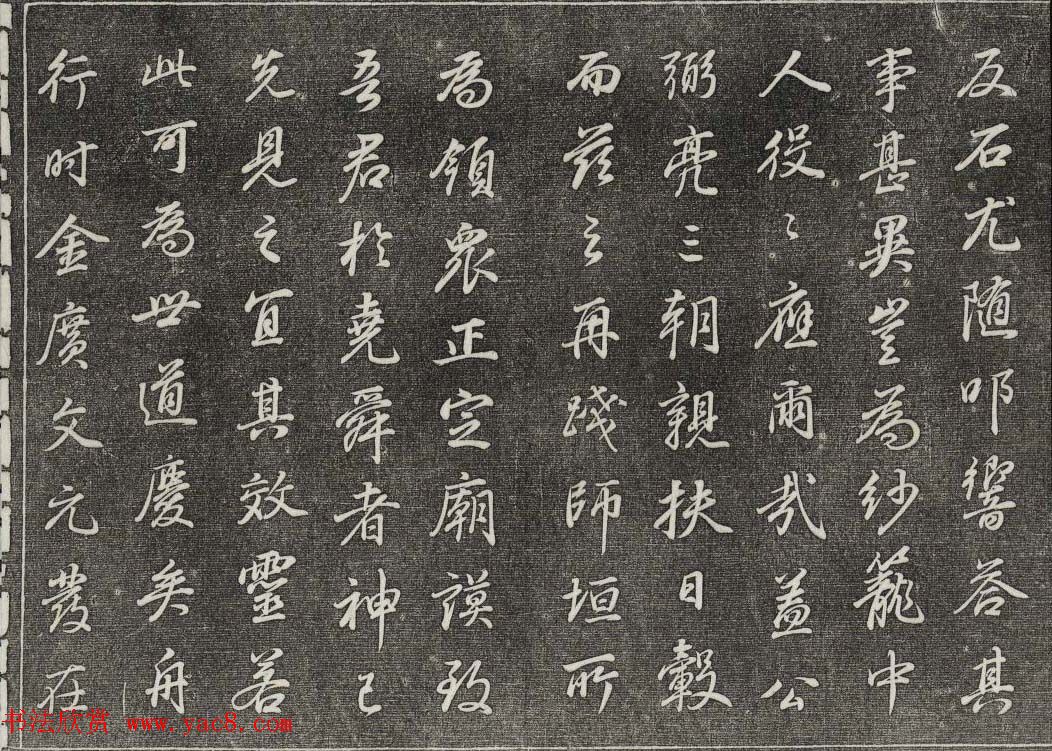 反石尤随叩響答其
事甚異豈為紗籠中
人役〻應爾哉蓋公
弼亮三朝親扶日轂
而茲之再踐師垣所
為領衆正定廟謨致
吾君於堯舜者神已
先見之宜其效靈若
此可為世道慶矣舟
行时金廣文元發在
书法欣赏 www.yac8.com